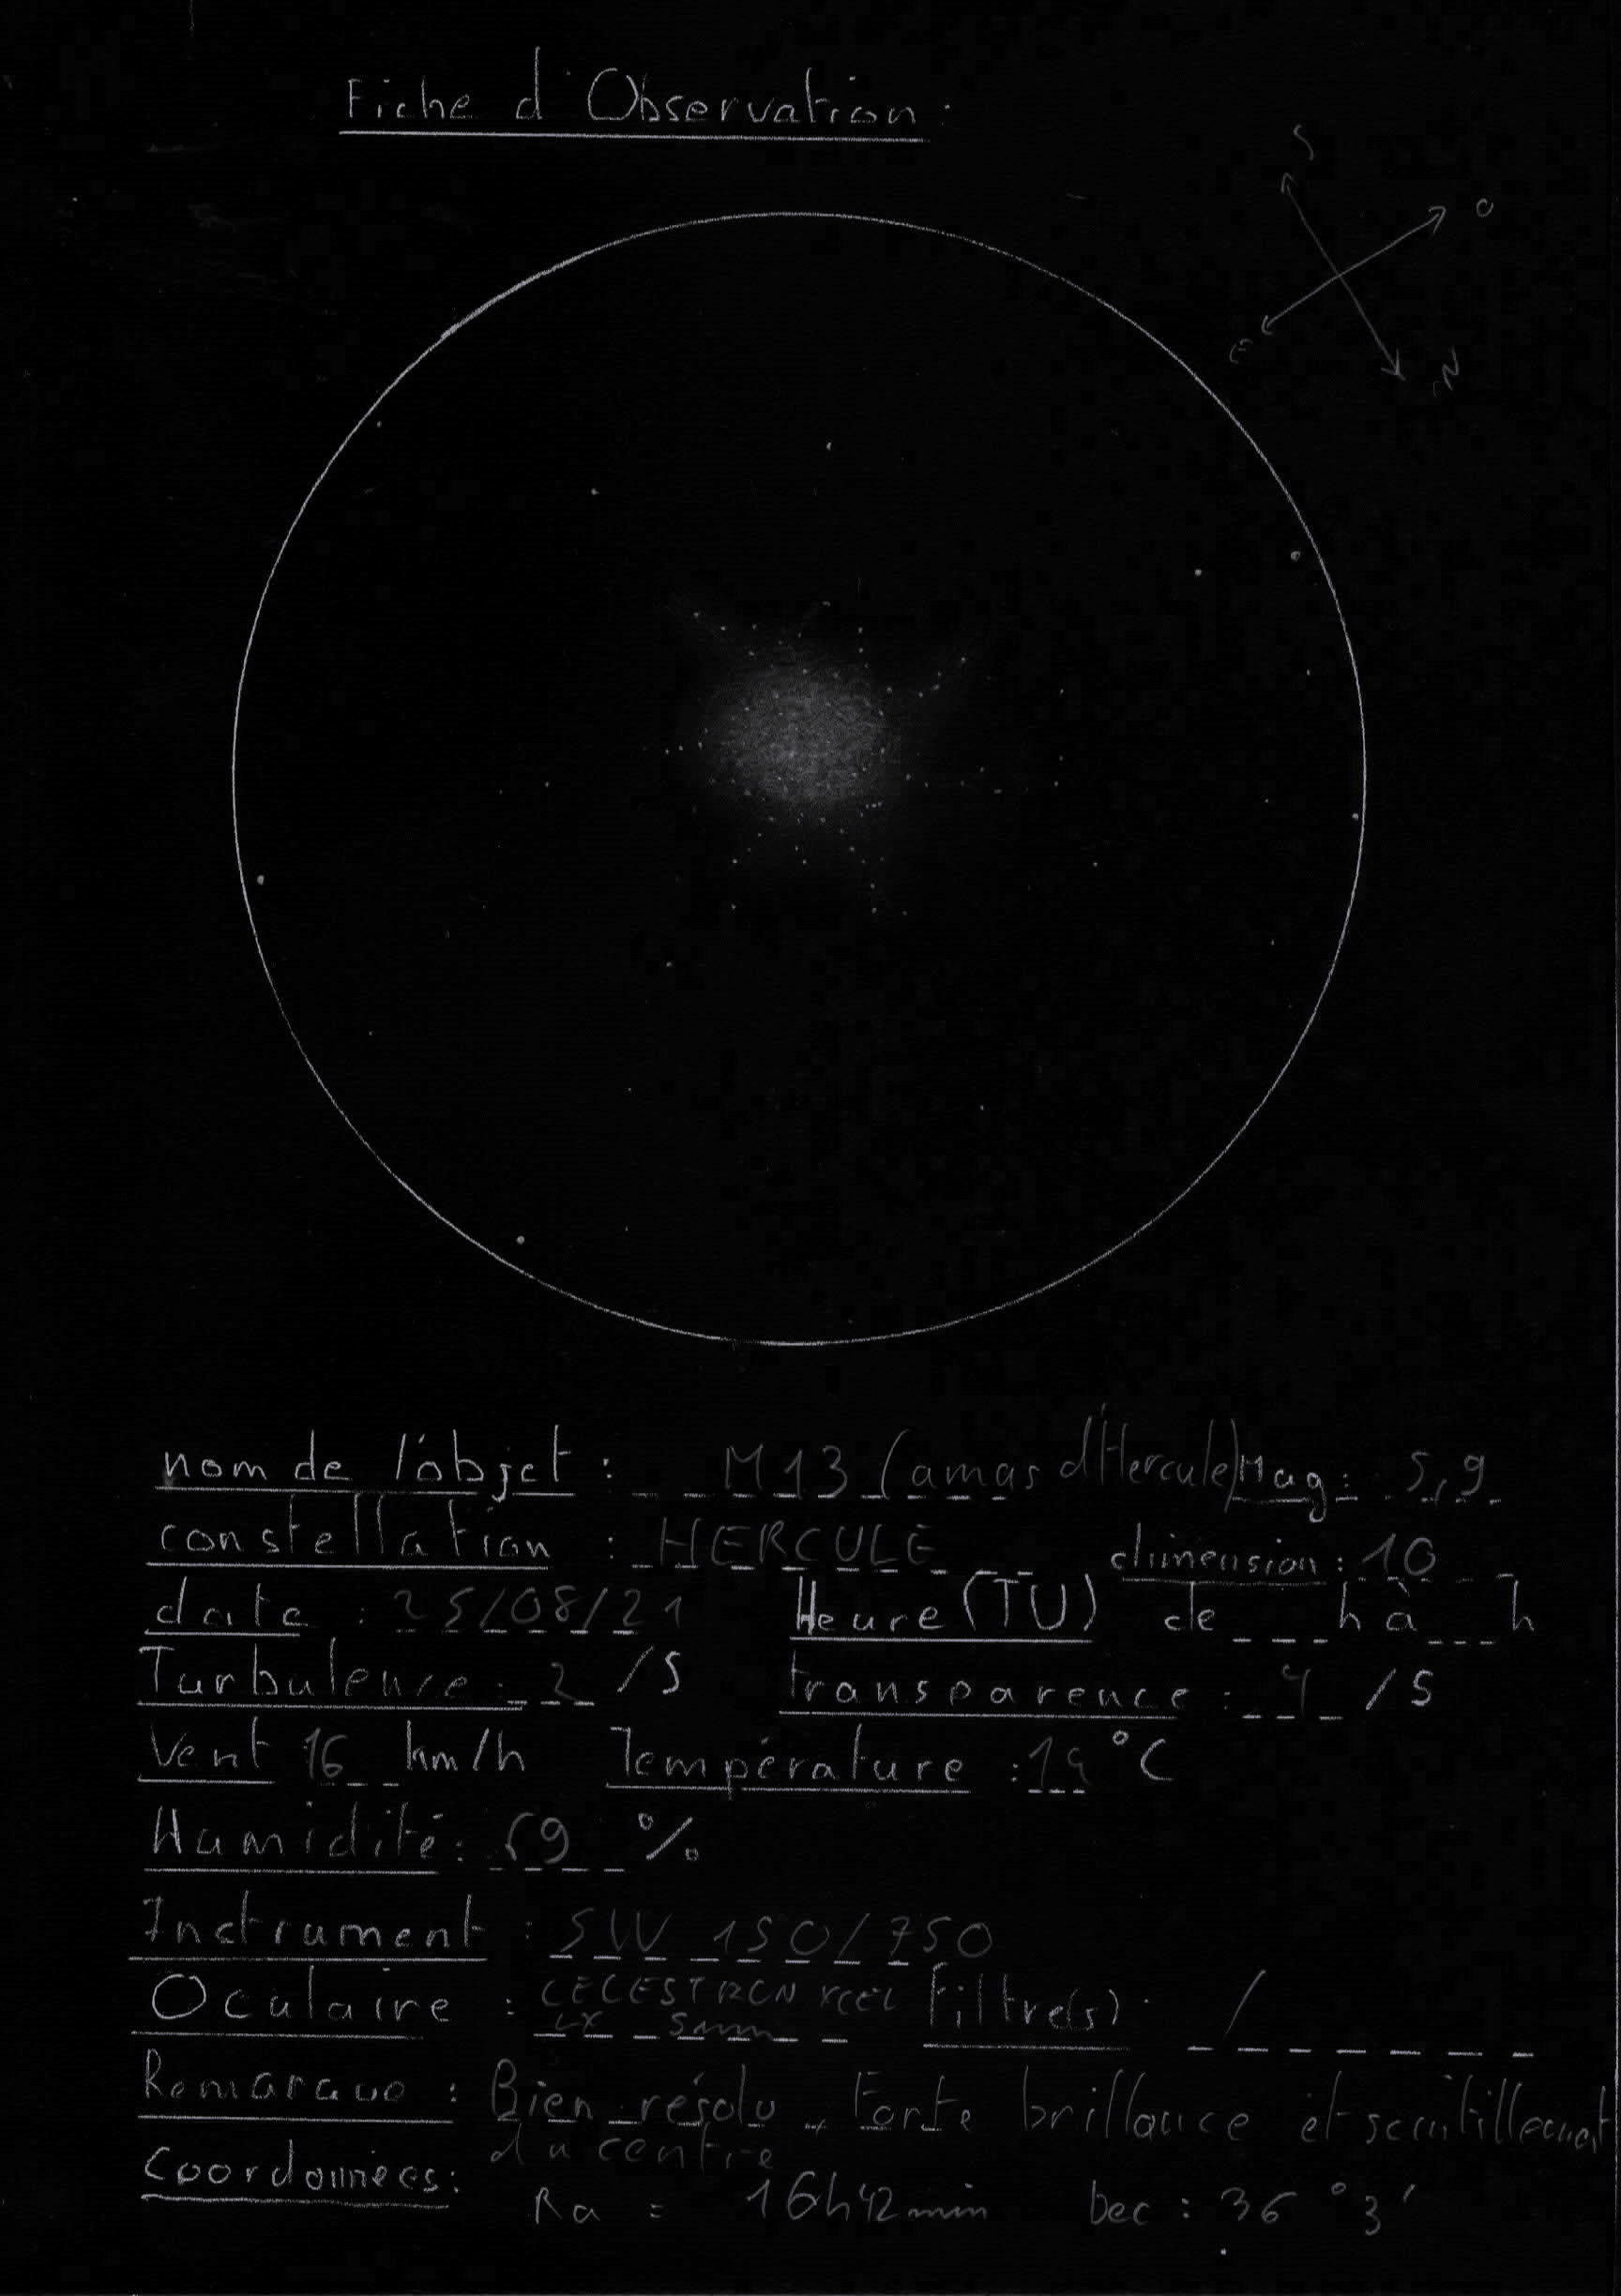 Fiche d'Observation :
S
O
E
N
nom de l'objet : M13 (amas d'Hercule) Mag : 5,9
constellation : HERCULE dimension : 10
date : 25/08/21 Heure (TU) de h à h
Turbulence : 2 /5 transparence : 4 /5
Vent 16 km/h Température : °C
Humidité : %
Instrument : SW 150/750
Oculaire : CELESTRON XCEL filtre(s) : /
LX 5mm
Remarque : Bien résolu. Forte brillance et scintillement
du centre
Coordonnées :
Ra = 16h42min Dec : 36°3'